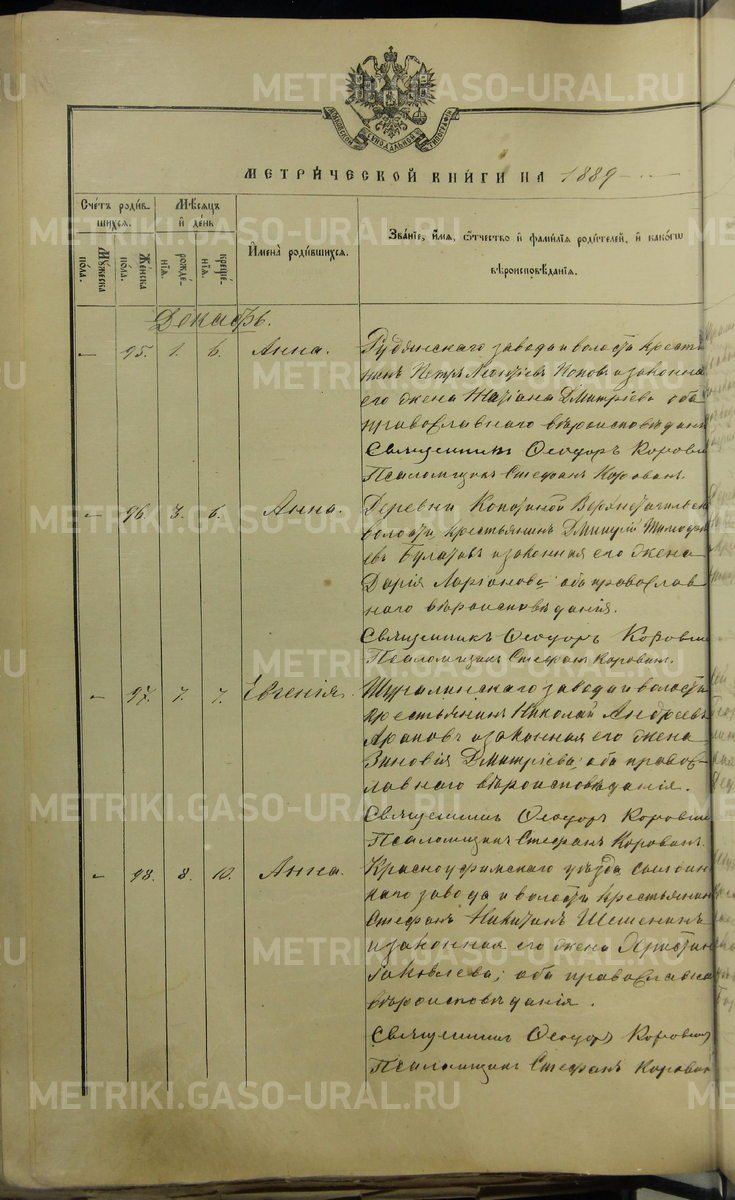 МЕТРИ́ЧЕСКОЙ КНИ́ГИ НА 1889
Сче́тъ роди́в-
шихся.
Мѣ́сяцъ
и́ де́нь
Му́жеска
по́ла.
Же́нска
по́ла.
рожде́-
нїя.
креще́-
нїя.
И҆мена̀ роди́вшихся.
Зва́нїе, и҆́мя, ѻ҆́тчество и҆ фами́лїя роди́телей, и҆ како́гѡ
вѣроисповѣ́данїя.
Декабрь.
— 95. 1. 6. Анна.
Рудянскаго завода и волости крестья
нинъ Петръ Леонтіевъ Поповъ и законна
его жена Татіана Дмитріева оба
православнаго вѣроисповѣдан
Священникъ Ѳеодоръ Корови
Псаломщикъ Стефанъ Корован.
— 96. 3. 6. Анна.
Деревни Копотиной Верхнетагильск
волости, крестьянинъ Дмитрій Тимофе
евъ Булатовъ и законная его жена
Дарія Ларіонова; оба православ
наго вѣроисповѣданія.
Священникъ Ѳеодоръ Корови
Псаломщикъ Стефанъ Корован.
— 97. 7. 7. Евгенія.
Шуралинскаго завода и волости
крестьянинъ Николай Андреевъ
Араповъ и законная его жена
Зиновія Дмитріева; оба правос
лавнаго вѣроисповѣданія.
Священникъ Ѳеодоръ Корови
Псаломщикъ Стефанъ Корован.
— 98. 8. 10. Анна.
Красноуфимскаго уѣзда
скаго завода и волости крестьянин
Стефанъ Никитинъ
и законная его жена Христин
Яковлева; оба православна
вѣроисповѣданія.
Священникъ Ѳеодоръ Корови
Псаломщикъ Стефанъ Корован
METRIKI.GASO-URAL.RU